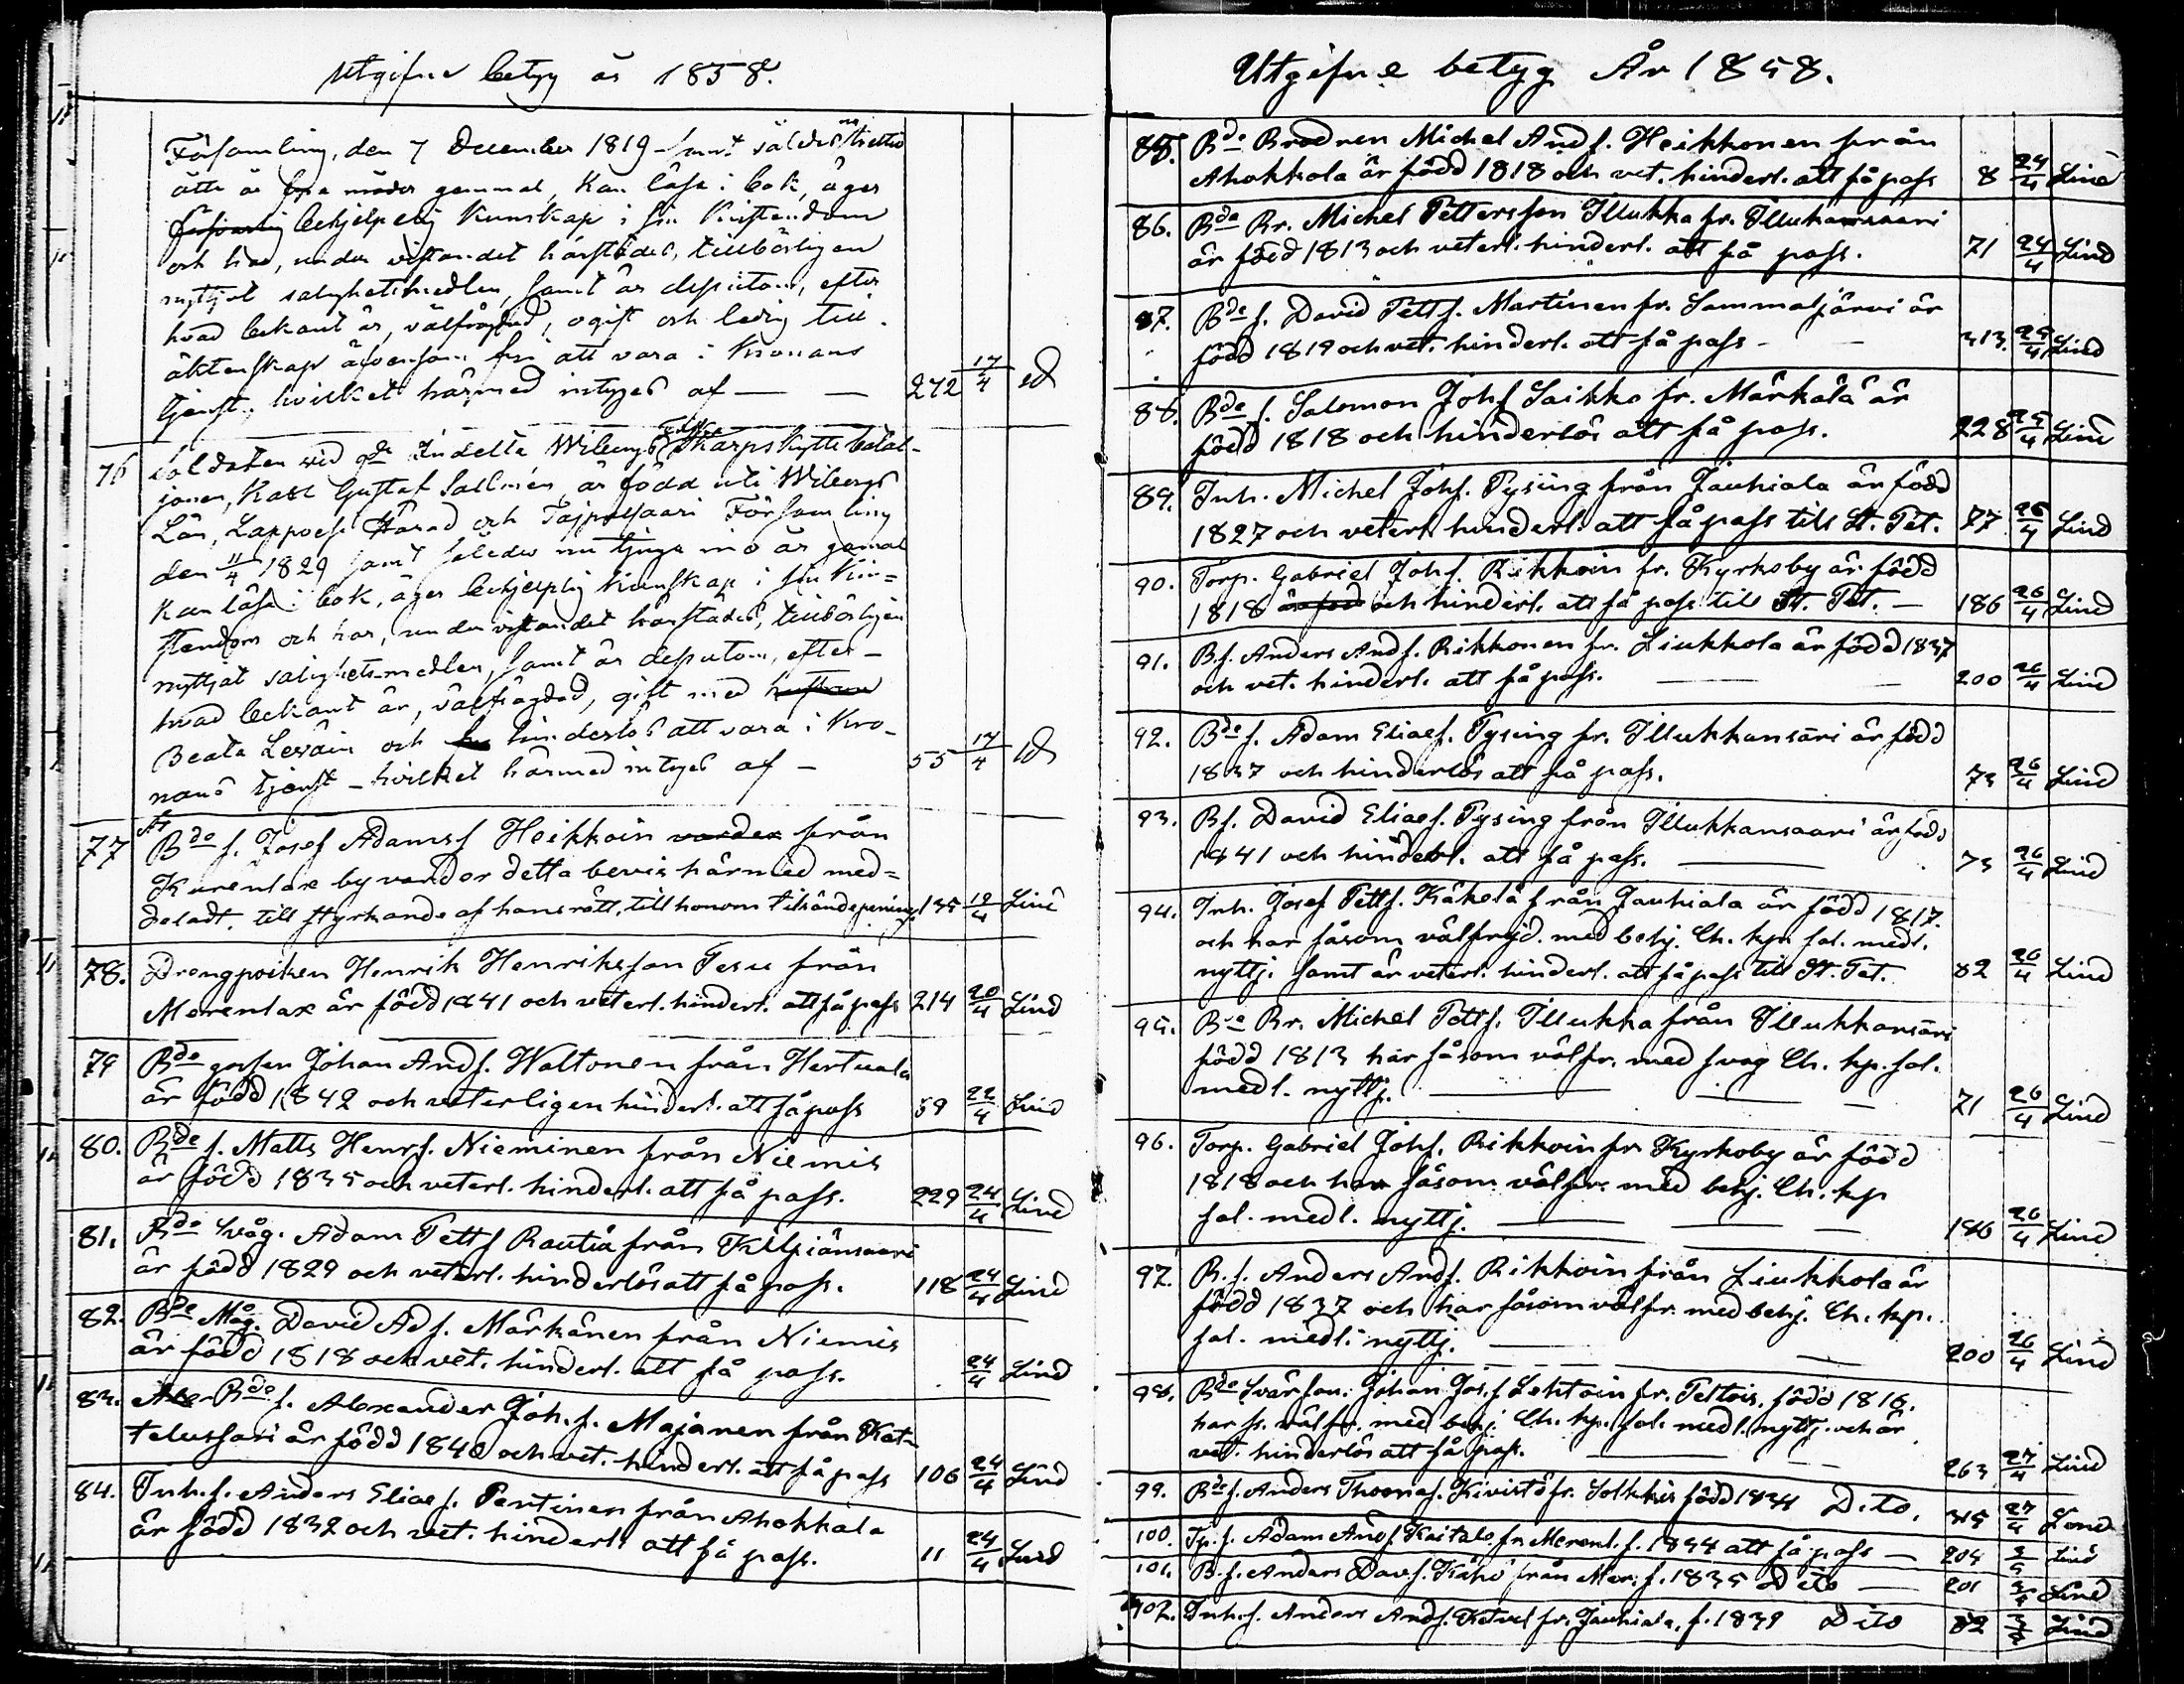 Utgifne betyg år 1858.
Församling, den 7 December 1819 samt således trettio
åtta år månader gammal, kan läsa i bok, äger
försvarlig behjelpelig kunskap i sin kristendom
och har, under vistandet härstädes, tillbörligen
nyttjat salighetsmedlen, samt är dessutom, efter
hvad bekant är, välfrägdad, ogift och ledig till
äktenskap äfvensom fri att vara i Kronans
tjenst, hvilket härmed intygas af — — 272 17/4
76 Soldaten wid Indelta Wiborgs Skarpskytte batal-
jonen, Karl Gustaf Sallmén, är född uti Wiborgs
Län, Lappvesi Härad och Taipalsaari Församling
den 11/4 1829 samt således nu tjugu nio år gamal
Kan läsa i bok, äger behjelplig kunskap i sin Kri=
stendom och har, under vistandet härstädes, tillbörligen
nyttjat salighetsmedlen, samt är dessutom, efter
hvad bekant är, välfrägdad, gift med hustrun
Beata Leväin och fri hinderlös att vara i Kro-
nans tjenst – hvilket härmed intygas af – 55 17/4
77 Bde s. Josef Adamss Heikkoin varder från
Kurenlax by varder detta bevis härmed med=
deladt, till styrkande af hans rätt, till honom tillsände penning 135 19/4 Lind
78. Drengpoiken Henrik Henriksson Tesu från
Merenlax är född 1841 och veterl. hinderl. att få pass 214 20/4 Lind
79 Bde gossen Johan Ands. Waltonen från Hertuala
är född 1842 och veterligen hinderl. att få pass 59 22/4 Lind
80. Bde s. Matts Henrs. Nieminen från Niemis
är född 1835 och veterl. hinderl. att få pass. 229 24/4 Lind
81. Bde Svåg. Adam Petts Rautia från Kilpiänsaari
är född 1829 och veterl. hinderlös att få pass. 118 24/4 Lind
82. Bde Måg. David Ads. Märkänen från Niemis
är född 1818 och vet. hinderl. att få pass. 24/4 Lind
83. Bde s. Alexander Joh. s. Majanen från Kat-
telussari är född 1840 och vet. hinderl. att få pass 106 24/4 Lind
84. Inh. s. Anders Elias s. Pentinen från Ahokkala
är född 1832 och vet. hinderl. att få pass. 11 24/4 Lind
Utgifne betyg År 1858.
85. Bde Brodren Michel Ands. Heikkonen från
Ahokkola är född 1818 och vet. hinderl. att få pass 8 24/4 Lind
86. Bde Br. Michel Pettersson Illukka fr. Illukansaari
är född 1813 och veterl. hinderl. att få pass. 71 24/4 Lind
87. Bde s. David Petts. Martinen fr. Sammaljärvi är
född 1819 och vet. hinderl. att få pass - — 313. 25/4 Lind
88. Bde s. Salomon Johs Saikko fr. Märkälä är
född 1818 och hinderlös att få pass. 228 25/4 Lind
89. Inh. Michel Johs. Pysing från Jauhiala är född
1827 och veterl. hinderl. att få pass till St. Pet. 77 26/4 Lind
90. Torp. Gabriel Johs. Rikkoin fr. Kyrkoby är född
1818 är född och hinderl. att få pass till St. Pet. — 186 26/4 Lind
91. B.s. Anders Ands. Rikkonen fr. Liukkola är född 1837
och vet. hinderl. att få pass. — — 200 26/4 Lind
92. Bde s. Adam Elias s. Pysing fr. Illukkansäri är född
1837 och hinderlös att få pass. 73 26/4 Lind
93. Bs. David Elias s. Pysing från Illukkansaari är född
1841 och hinderl. att få pass. — 73 26/4 Lind
94. Inh. Josef Petts. Käkelä från Jauhiala är född 1817.
och har såsom välfrejd. med behj. Ch. kp sal. medl.
nyttj. samt är veterl. hinderl. att få pass till St. Pet. 82 26/4 Lind
95. Bde Br. Michel Petts. Illukka från Illukkansäri
född 1813 har såsom välfr. med svag Ch. kp. sal.
medl. nyttj. — — — 71 26/4 Lind
96. Torp. Gabriel Johs. Rikkoin fr Kyrkoby är född
1818 och har såsom välfr. med behj. Ch. kp
sal. medl. nyttj. — — — 186 26/4 Lind
97. B. s. Anders Ands. Rikkoin från Liukkola är
född 1837 och har såsom välfr. med behj. Ch. kp.
sal. medl. nyttj. — — 200 26/4 Lind
98. Bde Svärson. Johan Jos. s Lehtoin fr. Pettois. född 1816.
har ss. välfr. med behj. Ch. kp. sal. medl. nyttj. och är
vet. hinderlös att få pass. — — 263 27/4 Lind
99. Bde s. Anders Thomas s. Kivistö fr. Solkkis född 1834 Dito. 315 27/4 Lind
100. Tp. s. Adam Ands. Kaitalo fr Merenl. f. 1844 att få pass — 204 3/5 Lind
101. B. s. Anders Dav. s. Kähö från Mer. f. 1835 Dito — 201 3/5 Lind
102. Inh. s. Anders Ands. Ketvel fr. Jauhiala, f. 1839 Dito 82 3/5 Lind